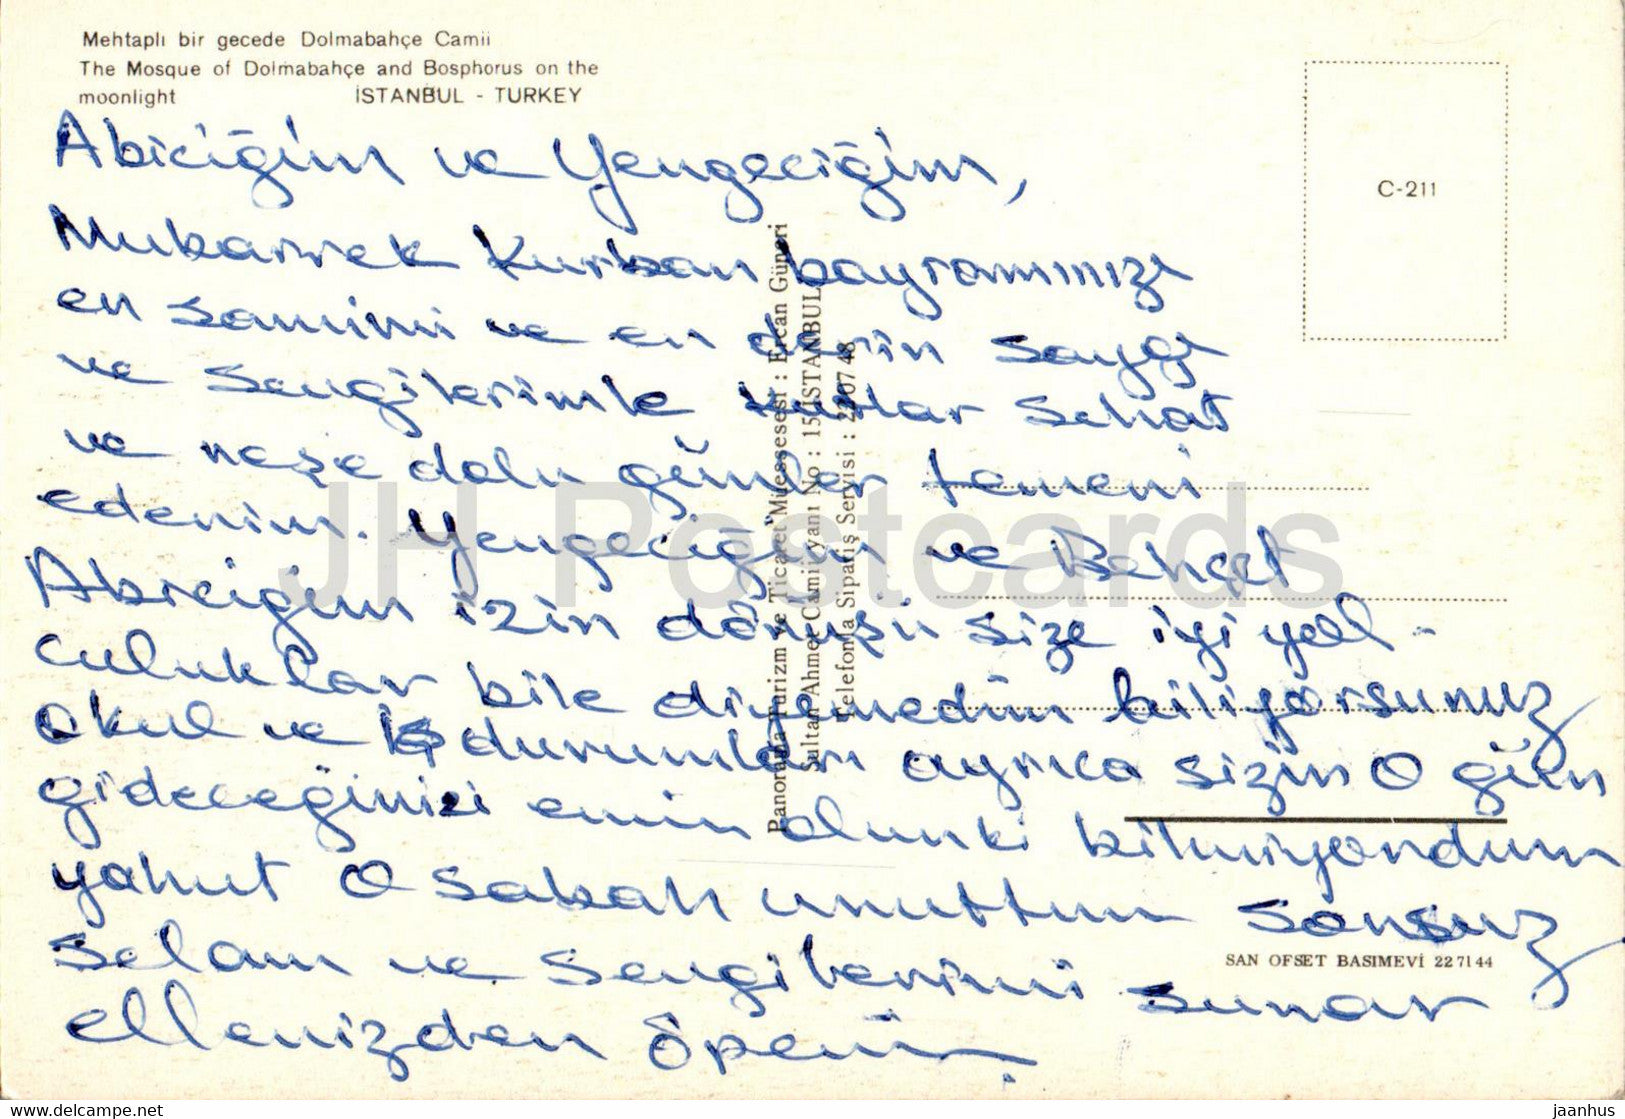 Mehtaplı bir gecede Dolmabahçe Camii
The Mosque of Dolmabahçe and Bosphorus on the
moonlight İSTANBUL - TURKEY
C-211
Abiciğim ve Yengeciğim,
Mubarrek Kurban bayramınızı
en samimi ve en derin saygı
ve sevgilerimle kutlar sehat
ve neşe dolu günler temeni
ederim. Yengeciğim ve Behçet
Abiciğim izin dönüşü size iyi yol-
culuklar bile diyemedim biliyorsunuz
okul ve iş durumları ayrıca sizin o gün
gideceğinizi emin olunki bilmiyordum
yahut o sabah unuttum sonsuz
selam ve sevgilerimi sunar
ellenizden öperim.
Panorama Turizm ve Ticaret Müessesesi : Ercan Güneri
Sultan Ahmet Camii yanı No : 15 İSTANBUL
Telefonla Sipariş Servisi : 22 07 48
SAN OFSET BASIMEVİ 22 71 44
JH Postcards
www.delcampe.net
jaanhus